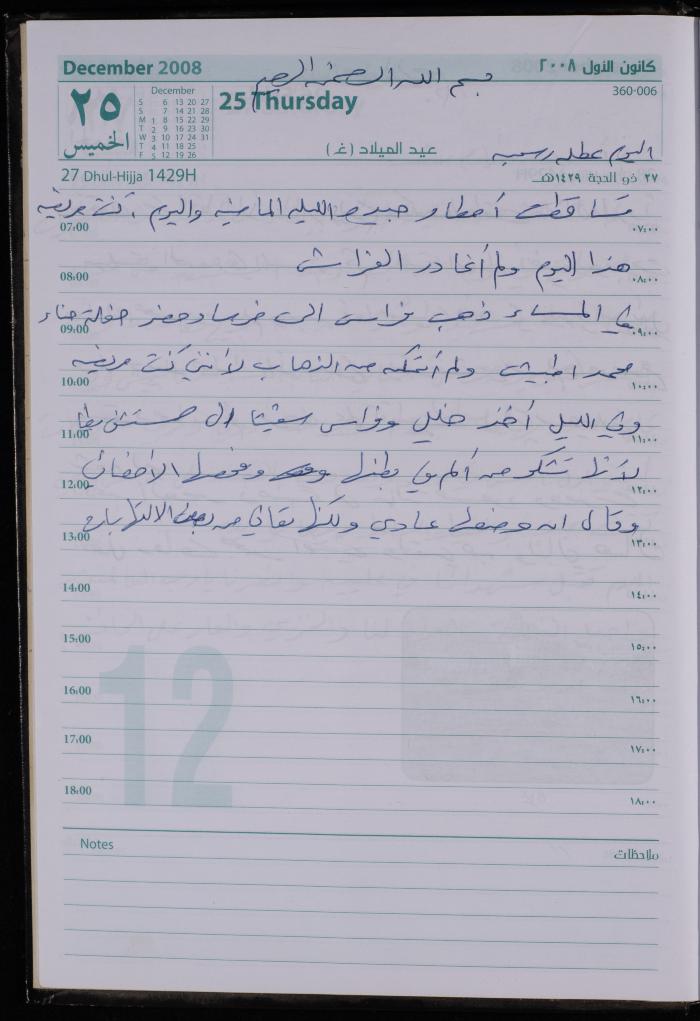 December 2008
كانون الأول ٢٠٠٨
بسم الله الرحمن الرحيم
٢٥
الخميس
December
S 6 13 20 27
S 7 14 21 28
M 1 8 15 22 29
T 2 9 16 23 30
W 3 10 17 24 31
T 4 11 18 25
F 5 12 19 26
25 Thursday
360-006
عيد الميلاد (غ)
اليوم عطله رسميه
27 Dhul-Hijja 1429H
٢٧ ذو الحجة ١٤٢٩هـ
تساقطت أمطار الليله الماضيه واليوم . كنت مريضه
07:00 ٠٧:٠٠
هذا اليوم ولم أغادر الفراش
08:00 ٠٨:٠٠
في المساء ذهب فراس الى وحضر حفلة حناء
09:00 ٠٩:٠٠
محمد ولم أتمكن من الذهاب لأنني كنت مريضه
10:00 ١٠:٠٠
وفي الليل أخذ خليل وفراس الى
11:00 ١١:٠٠
لأنها تشكو من ألم في بطنها وفحصها الأخصائي
12:00 ١٢:٠٠
وقال ان وضعها عادي ولكنها تعاني من بعض الالتهابات
13:00 ١٣:٠٠
14:00 ١٤:٠٠
15:00 ١٥:٠٠
16:00 ١٦:٠٠
17:00 ١٧:٠٠
18:00 ١٨:٠٠
12
Notes ملاحظات